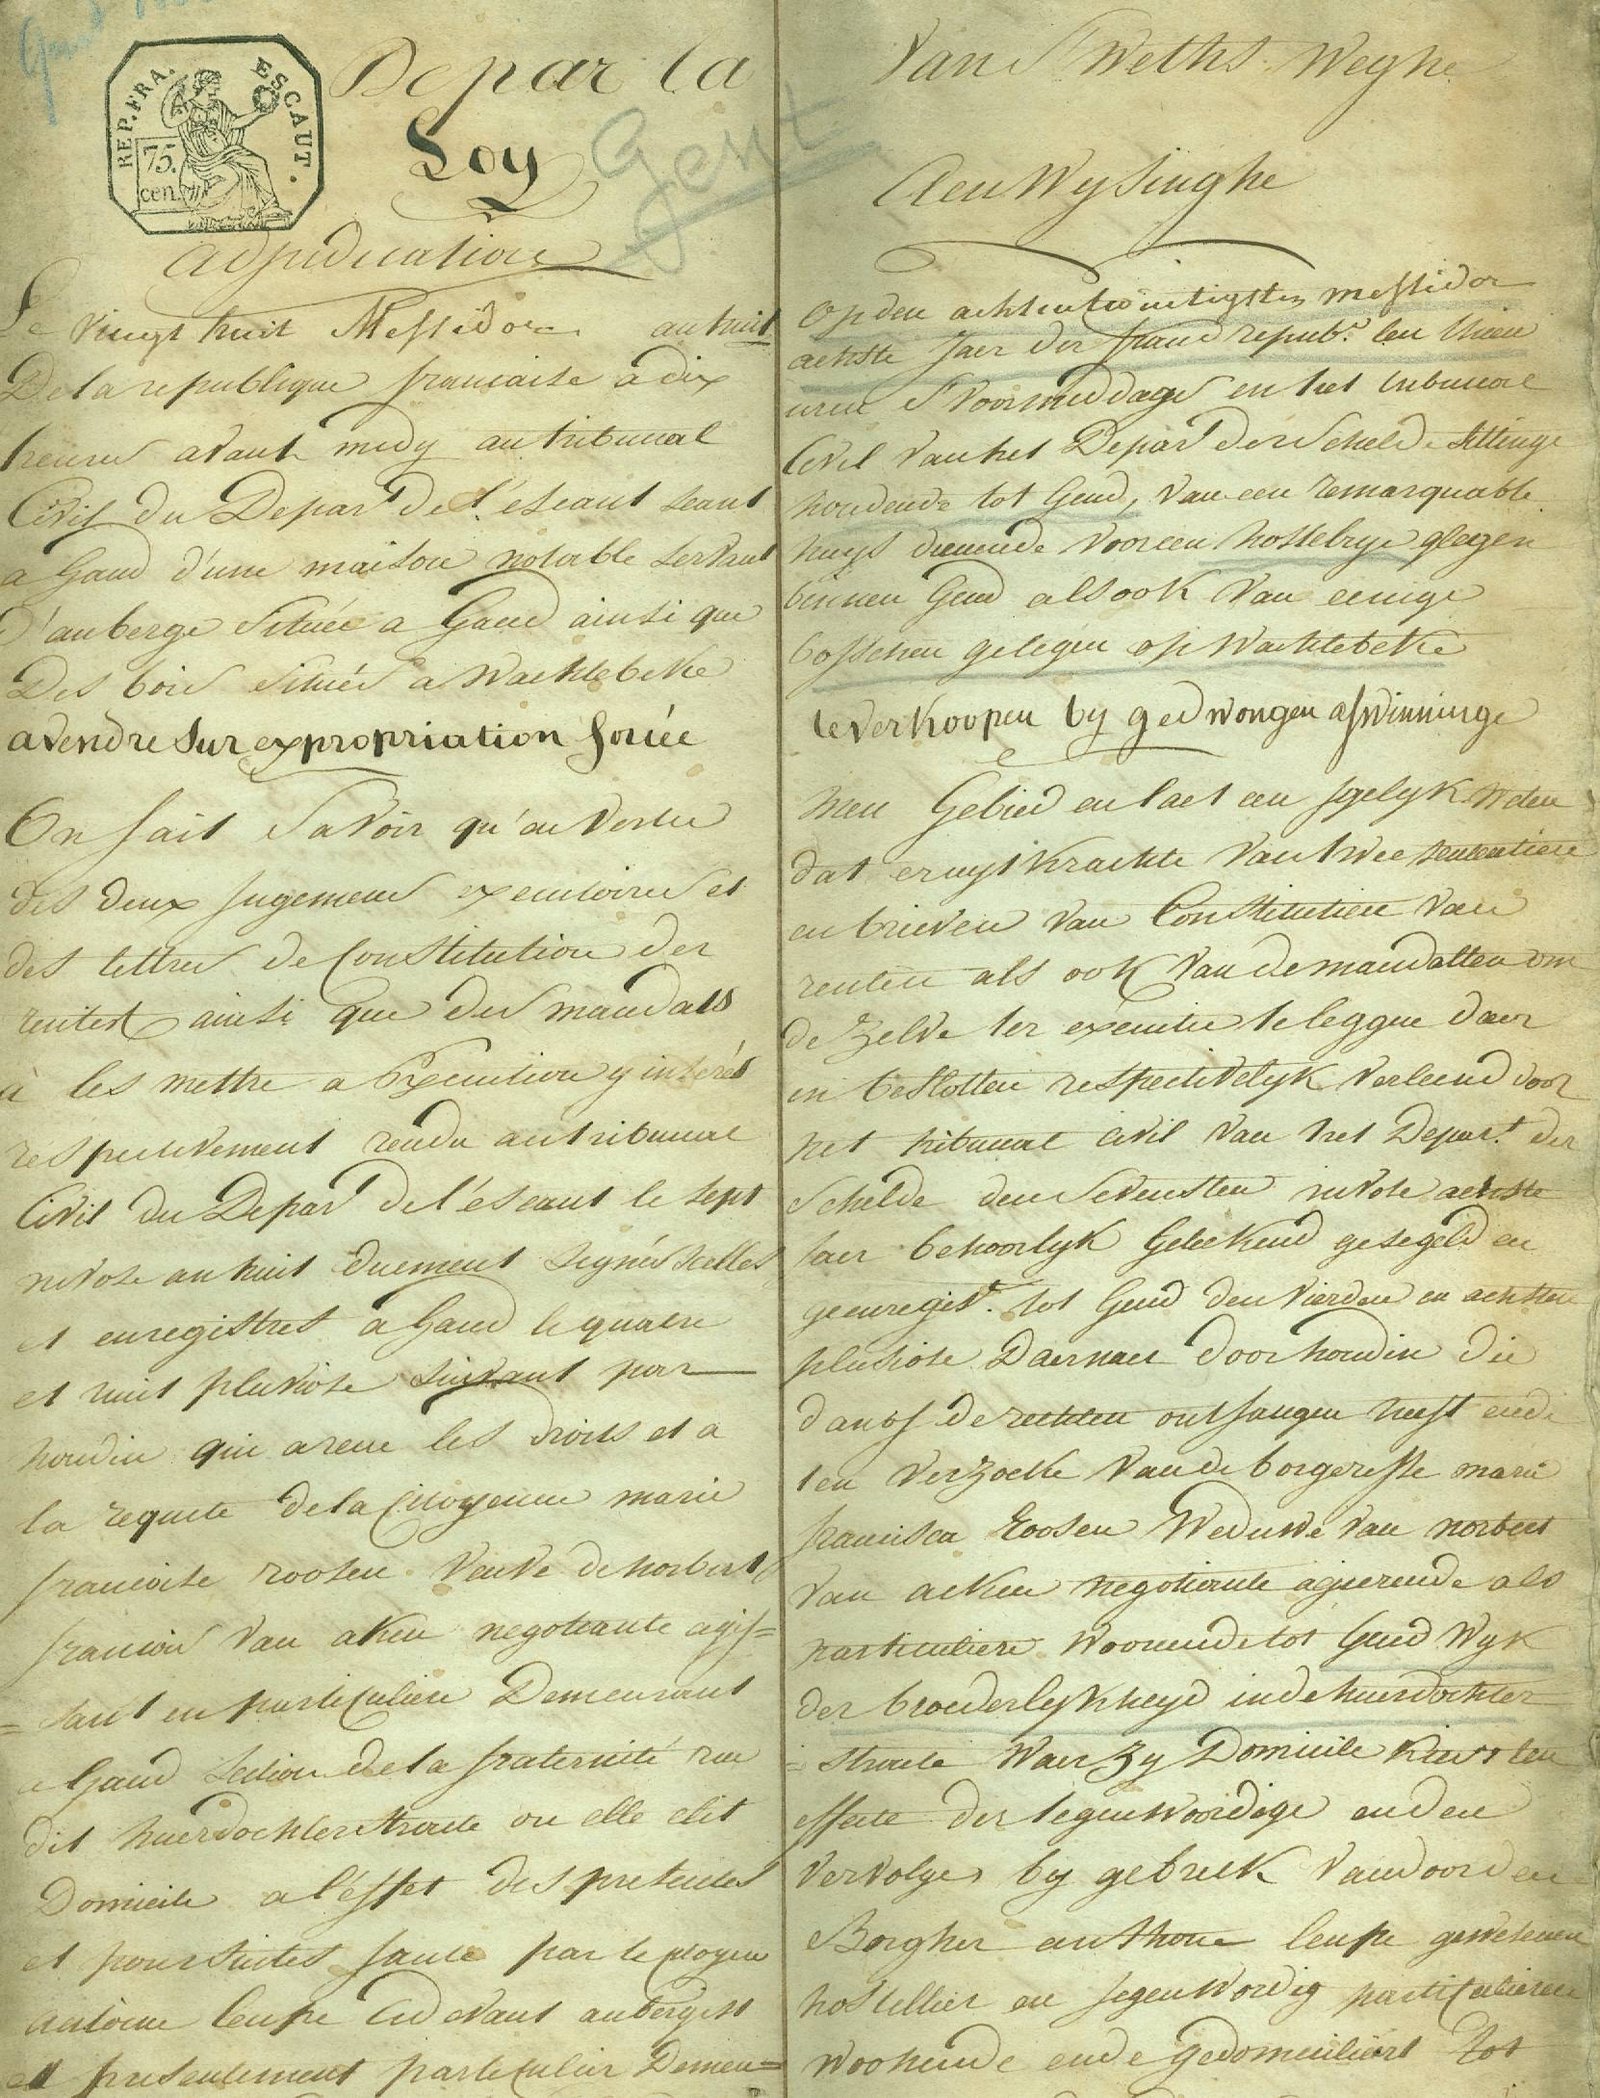 REP. FRA. ESCAUT.
75.
cen.
De par la
Loy
Gent
adjudication
Le vingt huit Messidor an huit
De la republique francaise a dix
heures avant midy au tribunal
Civil du Depart de l'escaut seant
a Gand d'une maison notable servant
D'auberge située a Gand ainsi que
Des bois situés a Wachtebeke
a vendre sur expropriation forcée
On fait savoir qu'en vertu
des deux jugemens executoires et
des lettres de Constitution der
rentes ainsi que des mandats
à les mettre a Execution y insérés
respectivement rendu au tribunal
Civil du Depart de l'escaut le sept
nivose an huit duement signés scellés
et enregistres a Gand le quatre
et huit pluviose suivant par
houdin qui a recu les droits et a
la requete de la Citoyenne marie
francoise roosen veuve de norbert
francois van aken negotiante agis=
=sant en particuliere Demeurant
a Gand section de la fraternité rue
dit huerdochterstraete ou elle elit
Domicile a l'effet des presentes
et poursuites faute par le citoyen
antoine leupe Cidevant aubergist
et presentement particulier Demeu=
Van S Weths Weghe
Aen Wysinghe
Op den achtentwintigsten messidor
achste jaer der franc republ. ten thien
uren S voormiddags en het tribunael
Civil van het Depart der Schelde sittinge
houdende tot Gend, van een remarquable
huys dienende voor een hostellerye gelegen
binnen Gend als ook van eenige
bosschen gelegen op Wachtebeke
te verkoopen by gedwongen afwinninge
Men Gebied en laet een jgelyk weten
dat er uyt krachte van twee sententien
en brieven van Constitutien van
renten als ook van de mandatten om
de zelve ter executie te leggen daer
in besloten respectivelyk verleend door
het tribunal civil van het Depart der
Schelde den sevensten nivose achste
jaer behoorlyk geteekend gesegeld en
geenregist. tot Gend den vierden en achsten
pluviose Daernaer door houdin die
dan of de rechten ontfangen heeft ende
ten verzoeke van de borgeresse marie
francisca Roosen Weduwe van norbert
van acken negotiante agerende als
particuliere woonende tot Gend Wyk
der broederlykheyd in de huerdochter
=straete waer zy Domicile kiest ten
effecte der tegenwoordige en den
vervolge by gebrek van door den
Borgher anthone leupe gewesenen
hostellier en jegenwordig particulieren
woonende ende gedomicilieert tot